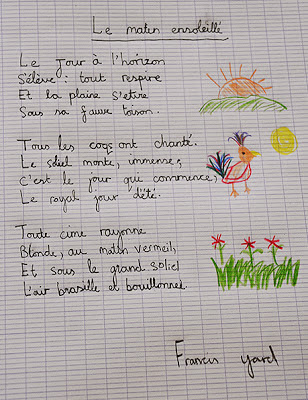 Le matin ensoleillé
Le Jour à l'horizon
S'élève : tout respire
Et la plaine s'étire
Sous sa fauve toison.
Tous les coqs ont chanté.
Le soleil monte, immense,
C'est le jour qui commence,
Le royal jour d'été.
Toute cime rayonne
Blonde, au matin vermeil,
Et sous le grand soleil
L'air brasille et bouillonne.
Francis Yard